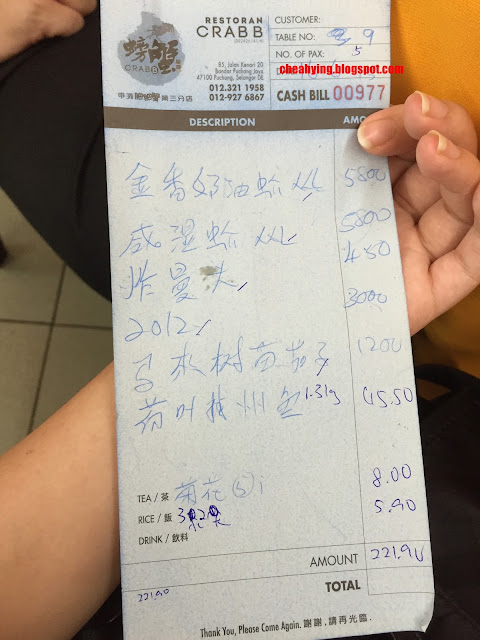 RESTORAN
CRAB B
螃蟹
CRAB B
85, Jalan Kenari 20
Bandar Puchong Jaya
47100 Puchong, Selangor DE
012.321 1958
012-927 6867
CUSTOMER:
TABLE NO.: 9
NO. OF PAX: 5
cheahying.blogspot.com
CASH BILL 00977
DESCRIPTION AMO
金香奶油蟹 XL 5800
咸湿蟹 XL 5800
炸曼头 450
2012 3000
马来树苗茄子 1200
荷叶 州 1.31g 45.50
TEA / 茶 菊花 (5) i 8.00
RICE / 飯 5.90
DRINK / 飲料
AMOUNT 221.90
221.90 TOTAL
Thank You, Please Come Again. 謝謝, 請再光臨.